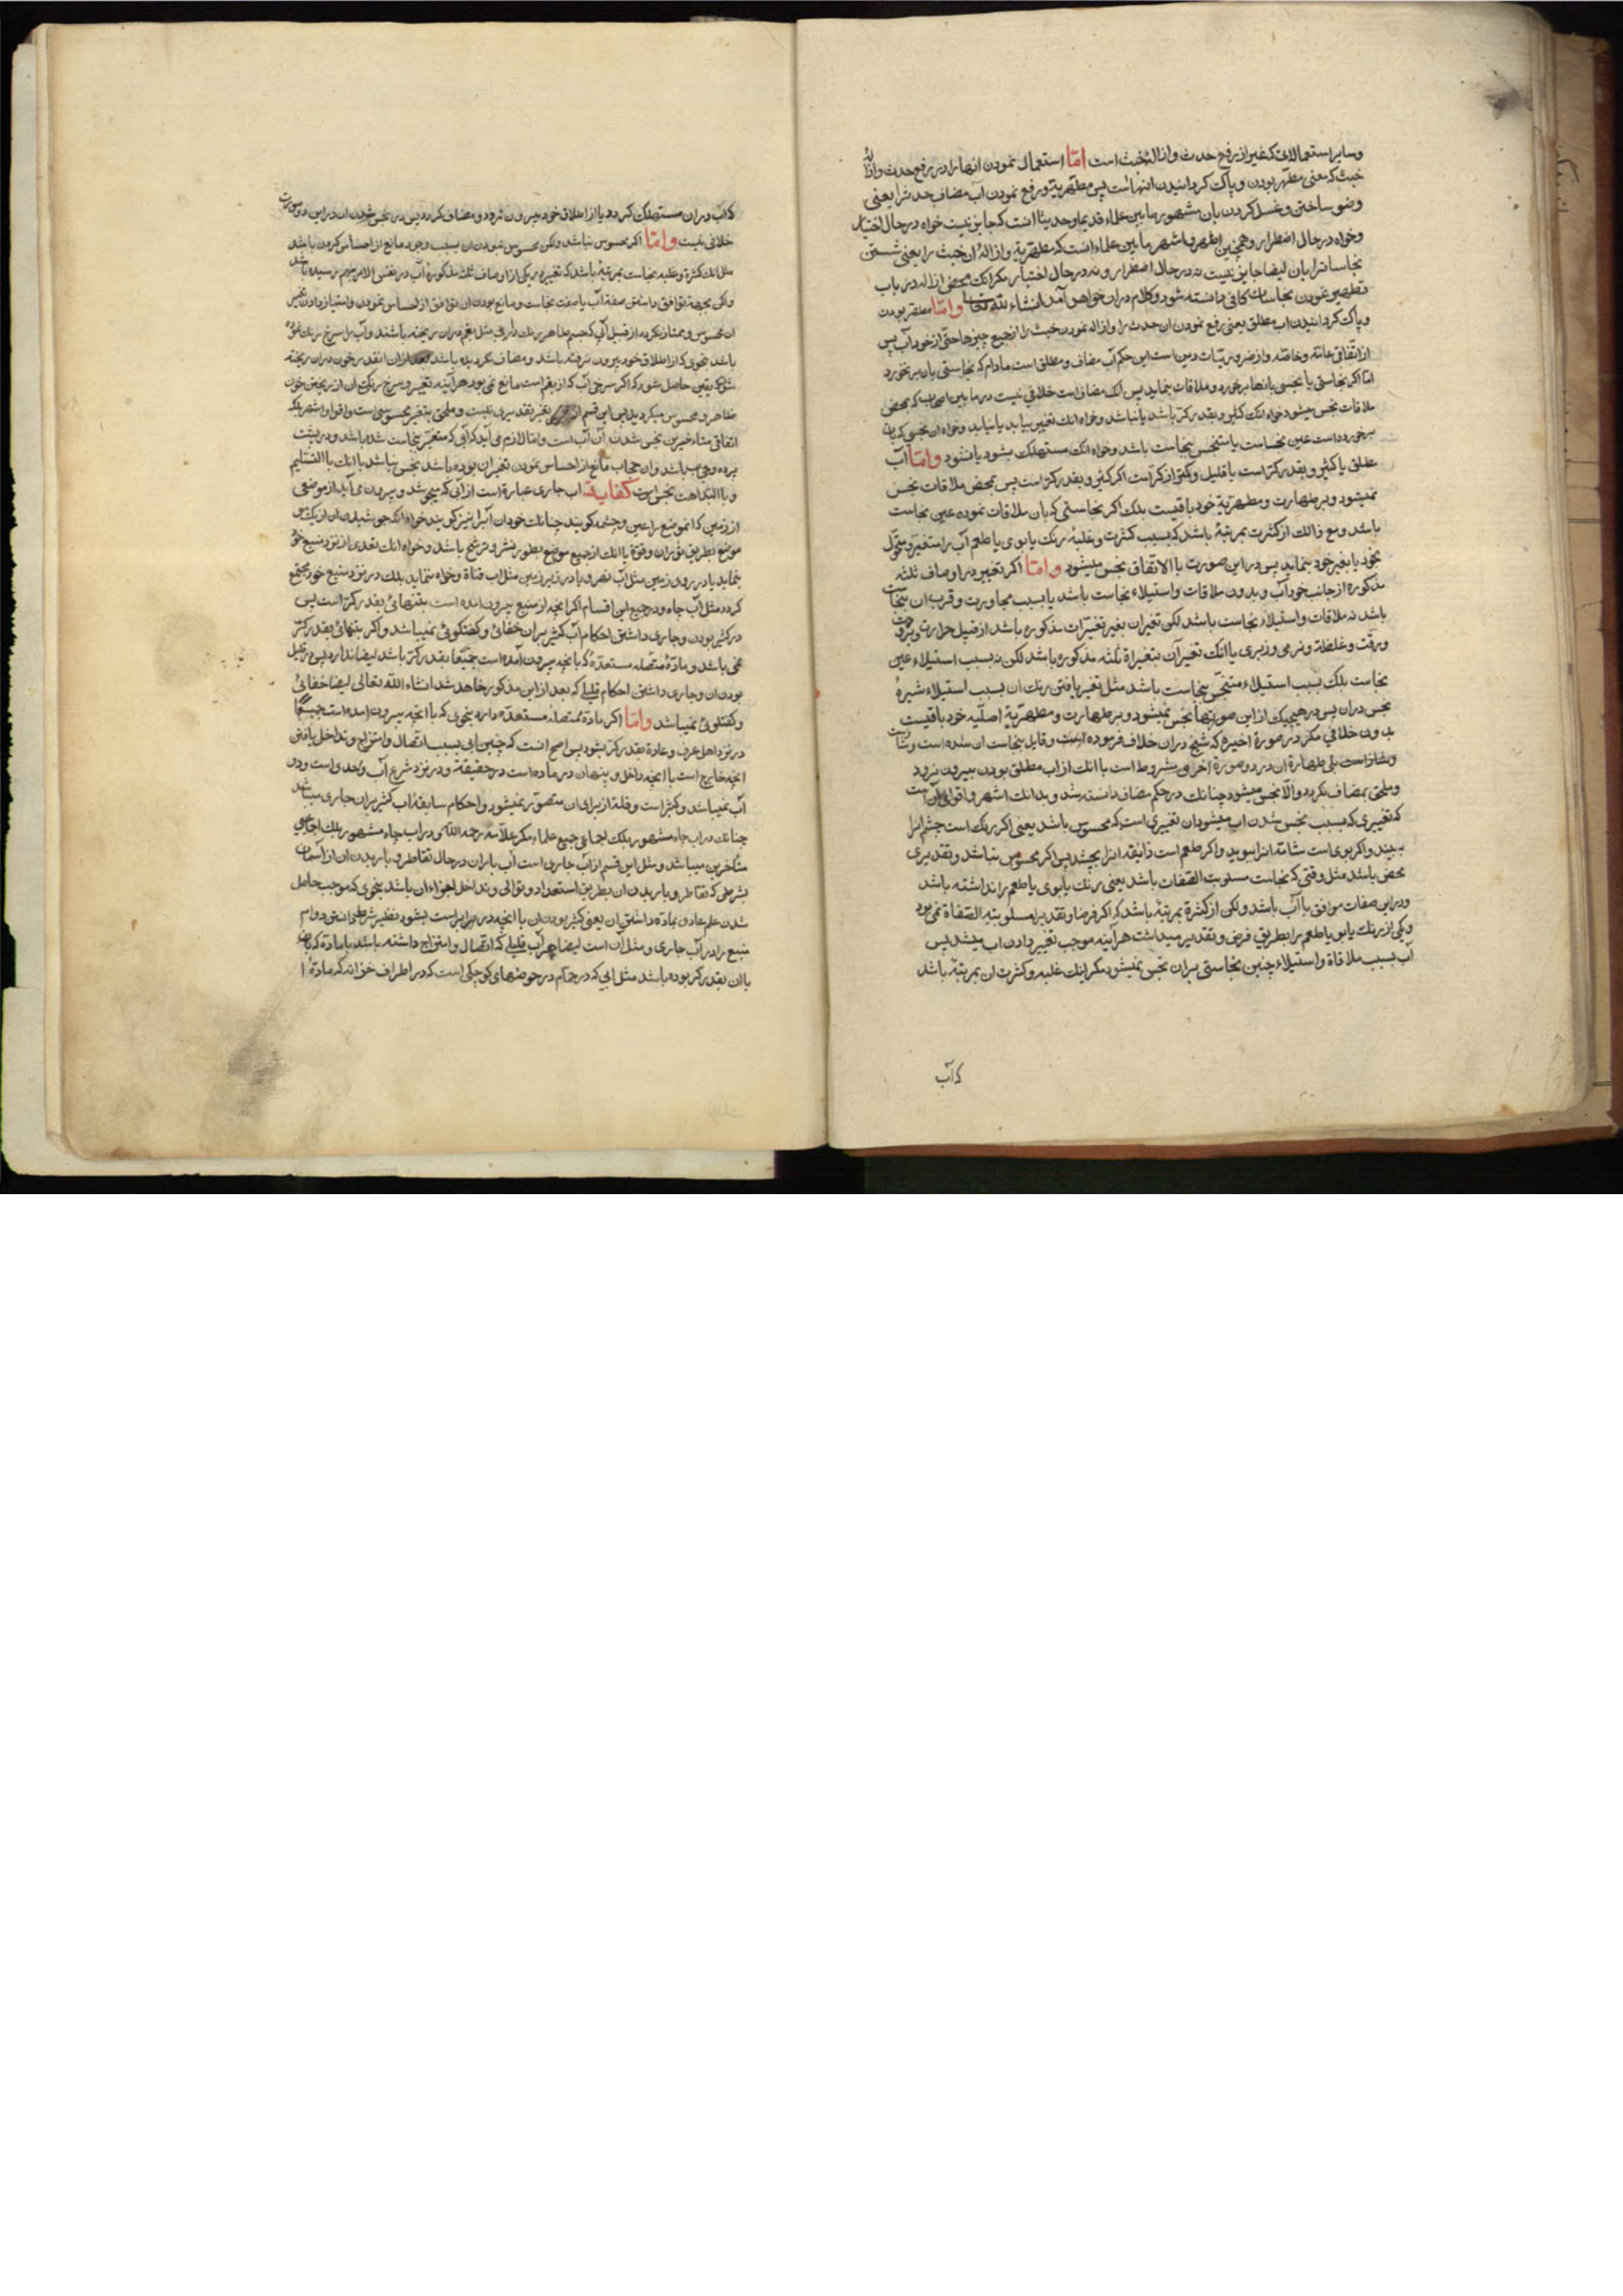 وسایر استعمالات که غیر از رفع حدث وازالهٔ خبث است امّا استعمال نمودن انها را در رفع حدث وازالهٔ
خبث که معنی مطهّر بودن و پاک کردانیدن انهاست پس مطهّریة ورفع نمودن آب مضاف حدث را یعنی
وضو ساختن وغسل کردن بان مشهور ما بین علماء قدیما وحدیثا انست که جایز نیست خواه در حال اختیار
وخواه در حال اضطرار وهمچنین اظهر واشهر ما بین علماء انست که مطهّریة وازالهٔ ان خبث را یعنی شستن
نجاسات را بان ایضا جایز نیست نه در حال اضطرار ونه در حال اختیار مکر انکه محض ازاله در باب
تطهیر نمودن نجاسات کافی دانسته شود وکلام در ان خواهد آمد انشاء الله تعالی وامّا مطهّر بودن
و پاک کردانیدن اب مطلق یعنی رفع نمودن ان حدث را وازاله نمودن خبث را از جمیع چیزها حتی از خود آب پس
از اتّفاقی عامّه وخاصّه واز ضروریّات دین است این حکم آب مضاف ومطلق است مادام که نجاستی بان بر نخورد
امّا اکر نجاستی یا نجسی بانها برخورد وملاقات نماید پس آب مضاف است خلافی نیست در ما بین اصحاب که بمحض
ملاقات نجس میشود خواه انکه کثیر وبقدر کرّ باشد یا نباشد وخواه انکه تغییر بیابد یا نیابد وخواه ان نجسی که بان
برخورده است عین نجاست یا متنجّس بنجاست باشد وخواه انکه مستهلک بشود یا نشود وامّا آب
مطلق یا کثیر وبقدر کرّ است یا قلیل وکمتر از کرّ است اکر کثیر وبقدر کرّ است پس بمحض ملاقات نجس
نمیشود وبر طهارت ومطهّریة خود باقیست بلکه اکر نجاستی که بان ملاقات نموده عین نجاست
باشد ومع ذالک از کثرت بمرتبهٔ باشد که بسبب کثرت وغلبهٔ رنک یا بوی یا طعم آب را متغیّر ومتحوّل
بخود یا بغیر خود بنماید پس در این صورت با الاتفاق نجس میشود وامّا اکر تغییر در اوصاف ثلثه
مذکوره از جانب خود آب وبدون ملاقات واستیلاء نجاست باشد یا بسبب مجاورت وقرب ان بنجاست
باشد نه ملاقات واستیلاء نجاست باشد لکن تغیر ان بغیر تغیّرات مذکوره باشد از قبیل حرارت وبرودت
ورقّت وغلظة ونرمی وزبری یا انکه تغیر آن بتغیراة ثلثه مذکوره باشد لکن نه بسبب استیلاء عین
نجاست بلکه بسبب استیلاء متنجّس بنجاست باشد مثل تغیر یافتن رنک ان بسبب استیلاء شیرهٔ
نجس در ان پس در هیچیک از این صورتها نجس نمیشود وبر طهارت ومطهّریّة اصلیّه خود باقیست
بدون خلافی مکر در صورة اخیره که شیخ در ان خلاف فرموده است وقایل بنجاست ان شده است
وشاذ است بلی طهارة ان در دو صورة اخری مشروط است با انکه از اب مطلق بودن بیرون نرود
وملحق بمضاف نکردد والّا نجس میشود چنانکه در حکم مضاف دانسته شد وبدانکه اشهر واقوای آنست
که تغییری که بسبب نجس شدن اب میشود ان تغییری است که محسوس باشد یعنی اکر رنک است چشم انرا
ببیند واکر بوی است شامّه انرا ببوید واکر طعم است ذایقه انرا بچشد پس اکر محسوس نباشد وتقدیری
محض باشد مثل وقتی که نجاست مسلوبت الصّفات باشد یعنی رنک یا بوی یا طعم را نداشته باشد
ودر این صفات موافق با آب باشد ولکن از کثرة بمرتبهٔ باشد که اکر فرضا وتقدیرا مسلوبیة الصفاة نمی بود
ویکی از رنک یا بو یا طعم را بطریق فرض وتقدیر میداشت هرآینه موجب تغییر دادن اب میشد پس
آب بسبب ملاقاة واستیلاء چنین نجاستی بر ان نجس نمیشود مکر انکه غلبه وکثرت ان بمرتبهٔ باشد
که آب
که آب در ان مستهلک کردد یا از اطلاق خود بیرون برود ومضاف کردد پس در نجس شدن ان در این دو صورت
خلافی نیست وامّا اکر محسوس نباشد ولکن محسوس نبودن ان بسبب وجود مانع از احساس کردن باشد
مثل انکه کثرة وغلبه نجاست بمرتبهٔ باشد که تغییر در یکی از اوصاف ثلثه مذکورهٔ آب در نفس الامر بهم رسیده باشد
ولکن بجهة توافق داشتن صفة آب با صفت نجاست ومانع بودن ان توافق از احساس نمودن وامتیاز دادن تغییر
ان محسوس وممتاز نکردد از قبیل آبی که جسم طاهر رنک داری مثل بقم در ان ریخته باشند وآب را سرخ رنک نموده
باشد بنحوی که از اطلاق خود بیرون نرفته باشد ومضاف نکردیده باشد بعد از ان انقدر خون در ان ریخته
شود که یقین حاصل شود که اکر سرخی آب که از بقم است مانع نمی بود هرآینه تغییر وسرخ رنکی ان از ریختن خون
ظاهر ومحسوس میکردید پس این قسم از تغیر تقدیری نیست وملحق بتغیر محسوسی است واقوا واشهر بلکه
اتفاقی متاءخیرین نجس شدن آن آب است وامّا لازم می آید که آبی که متغیّر بنجاست شده باشد ودر پشت
پرده وحجاب باشد وان حجاب مانع از احساس نمودن تغیر ان بوده باشد نجس نباشد با انکه با التسلیم
وبا البداهت نجس است کفایة اب جاری عبارة است از آبی که میجوشد وبیرون می آید از موضعی
از زمین که انموضع را عین وچشمه کویند چنانکه خود ان آبرا نیز کویند خواه انکه جوشیدن ان از یک
موضع بطریق فوران وقوة یا انکه از جمیع موضع بطور نشر وترشّح باشد وخواه انکه تعدی از نزد منبع خود
بنماید یا در روی زمین مثل آب نهر ویا در زیر زمین مثل اب قناة وخواه ننماید بلکه در نزد منبع خود مجتمع
کردد مثل آب چاه ودر جمیع این اقسام اکر انچه از منبع بیرون امده است بتنهائی بقدر کرّ است پس
در کثیر بودن وجاری داشتن احکام آب کثیر بر ان خفائی وکفتکوئی نمیباشد واکر بتنهائی بقدر کرّ
نمی باشد ومادّهٔ متصله مستعدّهٔ که با انچه بیرون آمده است جمیعًا بقدر کرّ باشد ایضا ندارد پس در قلیل
بودن ان وجاری داشتن احکام قلیلی که بعد از این مذکور خاهد شد انشاء الله تعالی ایضا خفائی
وکفتکوئی نمیباشد وامّا اکر مادّهٔ متصلهٔ مستعدّه دارد بنحوی که با انچه بیرون امده است جمیعًا
در نزد اهل عرف وعادة بقدر کرّ بشود پس اصح انست که چنین ابی بسبب اتصال وامتزاج وتداخل یافتن
انچه خارج است با انچه داخل وپنهان در مادّه است در حقیقة ودر نزد شرع آب واحد است
آب نمیباشد وکثیر است وقلة از برای ان متصوّر نمیشود واحکام سابقهٔ اب کثیر بر ان جاری میباشد
چنانکه در اب چاه مشهور بلکه اجماعی جمیع علماء مکر علّامه رحمه الله ودر اب چاه مشهور بلکه اجماعی
متأخرین میباشد ومثل این قسم از آب جاری است آب باران در حال تقاطر وباریدن ان از آسمان
بشرطی که تقاطر وباریدن ان بطریق استعداد وتوالی وتداخل اجزاء ان باشد بنحوی که موجب حاصل
شدن علم عادی بمادّه داشتن ان یعنی کثیر بودن ان با انچه در برابر است بشود نظیر شرط دانستن دوام
منبع را در آب جاری ومثل آن است ایضا هر آب قلیلی که اتصال وامتزاج داشته باشد با مادّه که
با ان بقدر کر بوده باشد مثل ابی که در حمّام در حوضهای کوچکی است که در اطراف خزانه که مادّهٔ ا